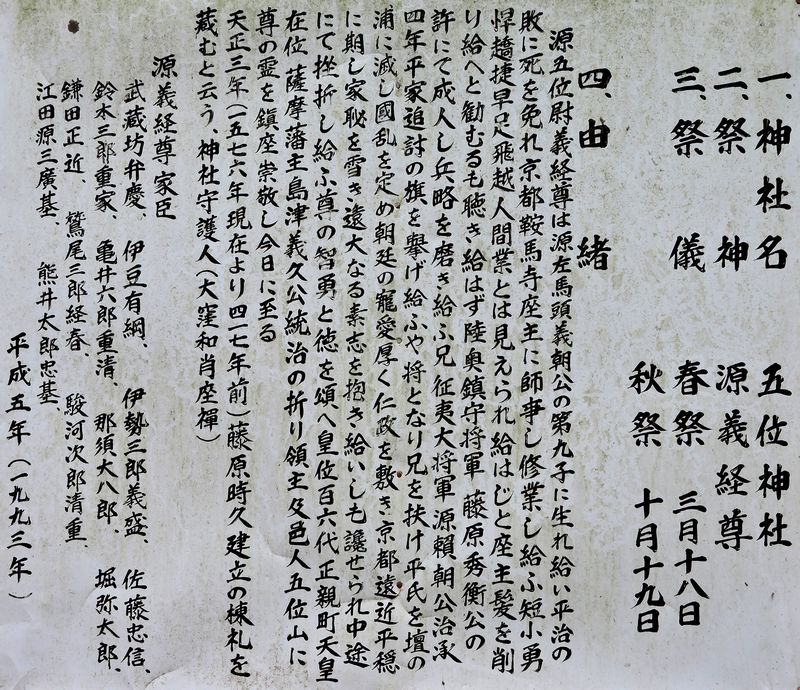 一、神社名　五位神社
二、祭神　源義経尊
三、祭儀　春祭　三月十八日
秋祭　十月十九日
四、由緒
源五位尉義経尊は源左馬頭義朝公の第九子に生れ給い平治の
敗に死を免れ京都鞍馬寺座主に師事し修業し給ふ短小勇
悍趫捷早足飛越人間業とは見えられ給はじと座主髪を削
り給へと勧むるも聴き給はず陸奥鎮守将軍　藤原秀衡公の
許にて成人し兵略を磨き給ふ兄征夷大将軍源頼朝公治承
四年平家追討の旗を擧げ給ふや将となり兄を扶け平氏を壇の
浦に滅し國乱を定め朝廷の寵愛厚く仁政を敷き京都遠近平穏
に期し家恥を雪き遠大なる素志を抱き給いしも讒せられ中途
にて挫折し給ふ尊の智勇と徳を頌へ皇位百六代正親町天皇
在位　薩摩藩主島津義久公統治の折り領主及邑人五位山に
尊の霊を鎮座崇敬し今日に至る
天正三年（一五七六年現在より四一七年前）藤原時久建立の棟礼を
蔵むと云う、神社守護人（大窪和肖座禪）
源義経尊家臣
武蔵坊弁慶、伊豆有綱、伊勢三郎義盛、佐藤忠信、
鈴木三郎重家、亀井六郎重清、那須大八郎、堀弥太郎、
鎌田正近、鷲尾三郎経春、駿河次郎清重、
江田源三廣基、熊井太郎忠基、
平成五年（一九九三年）